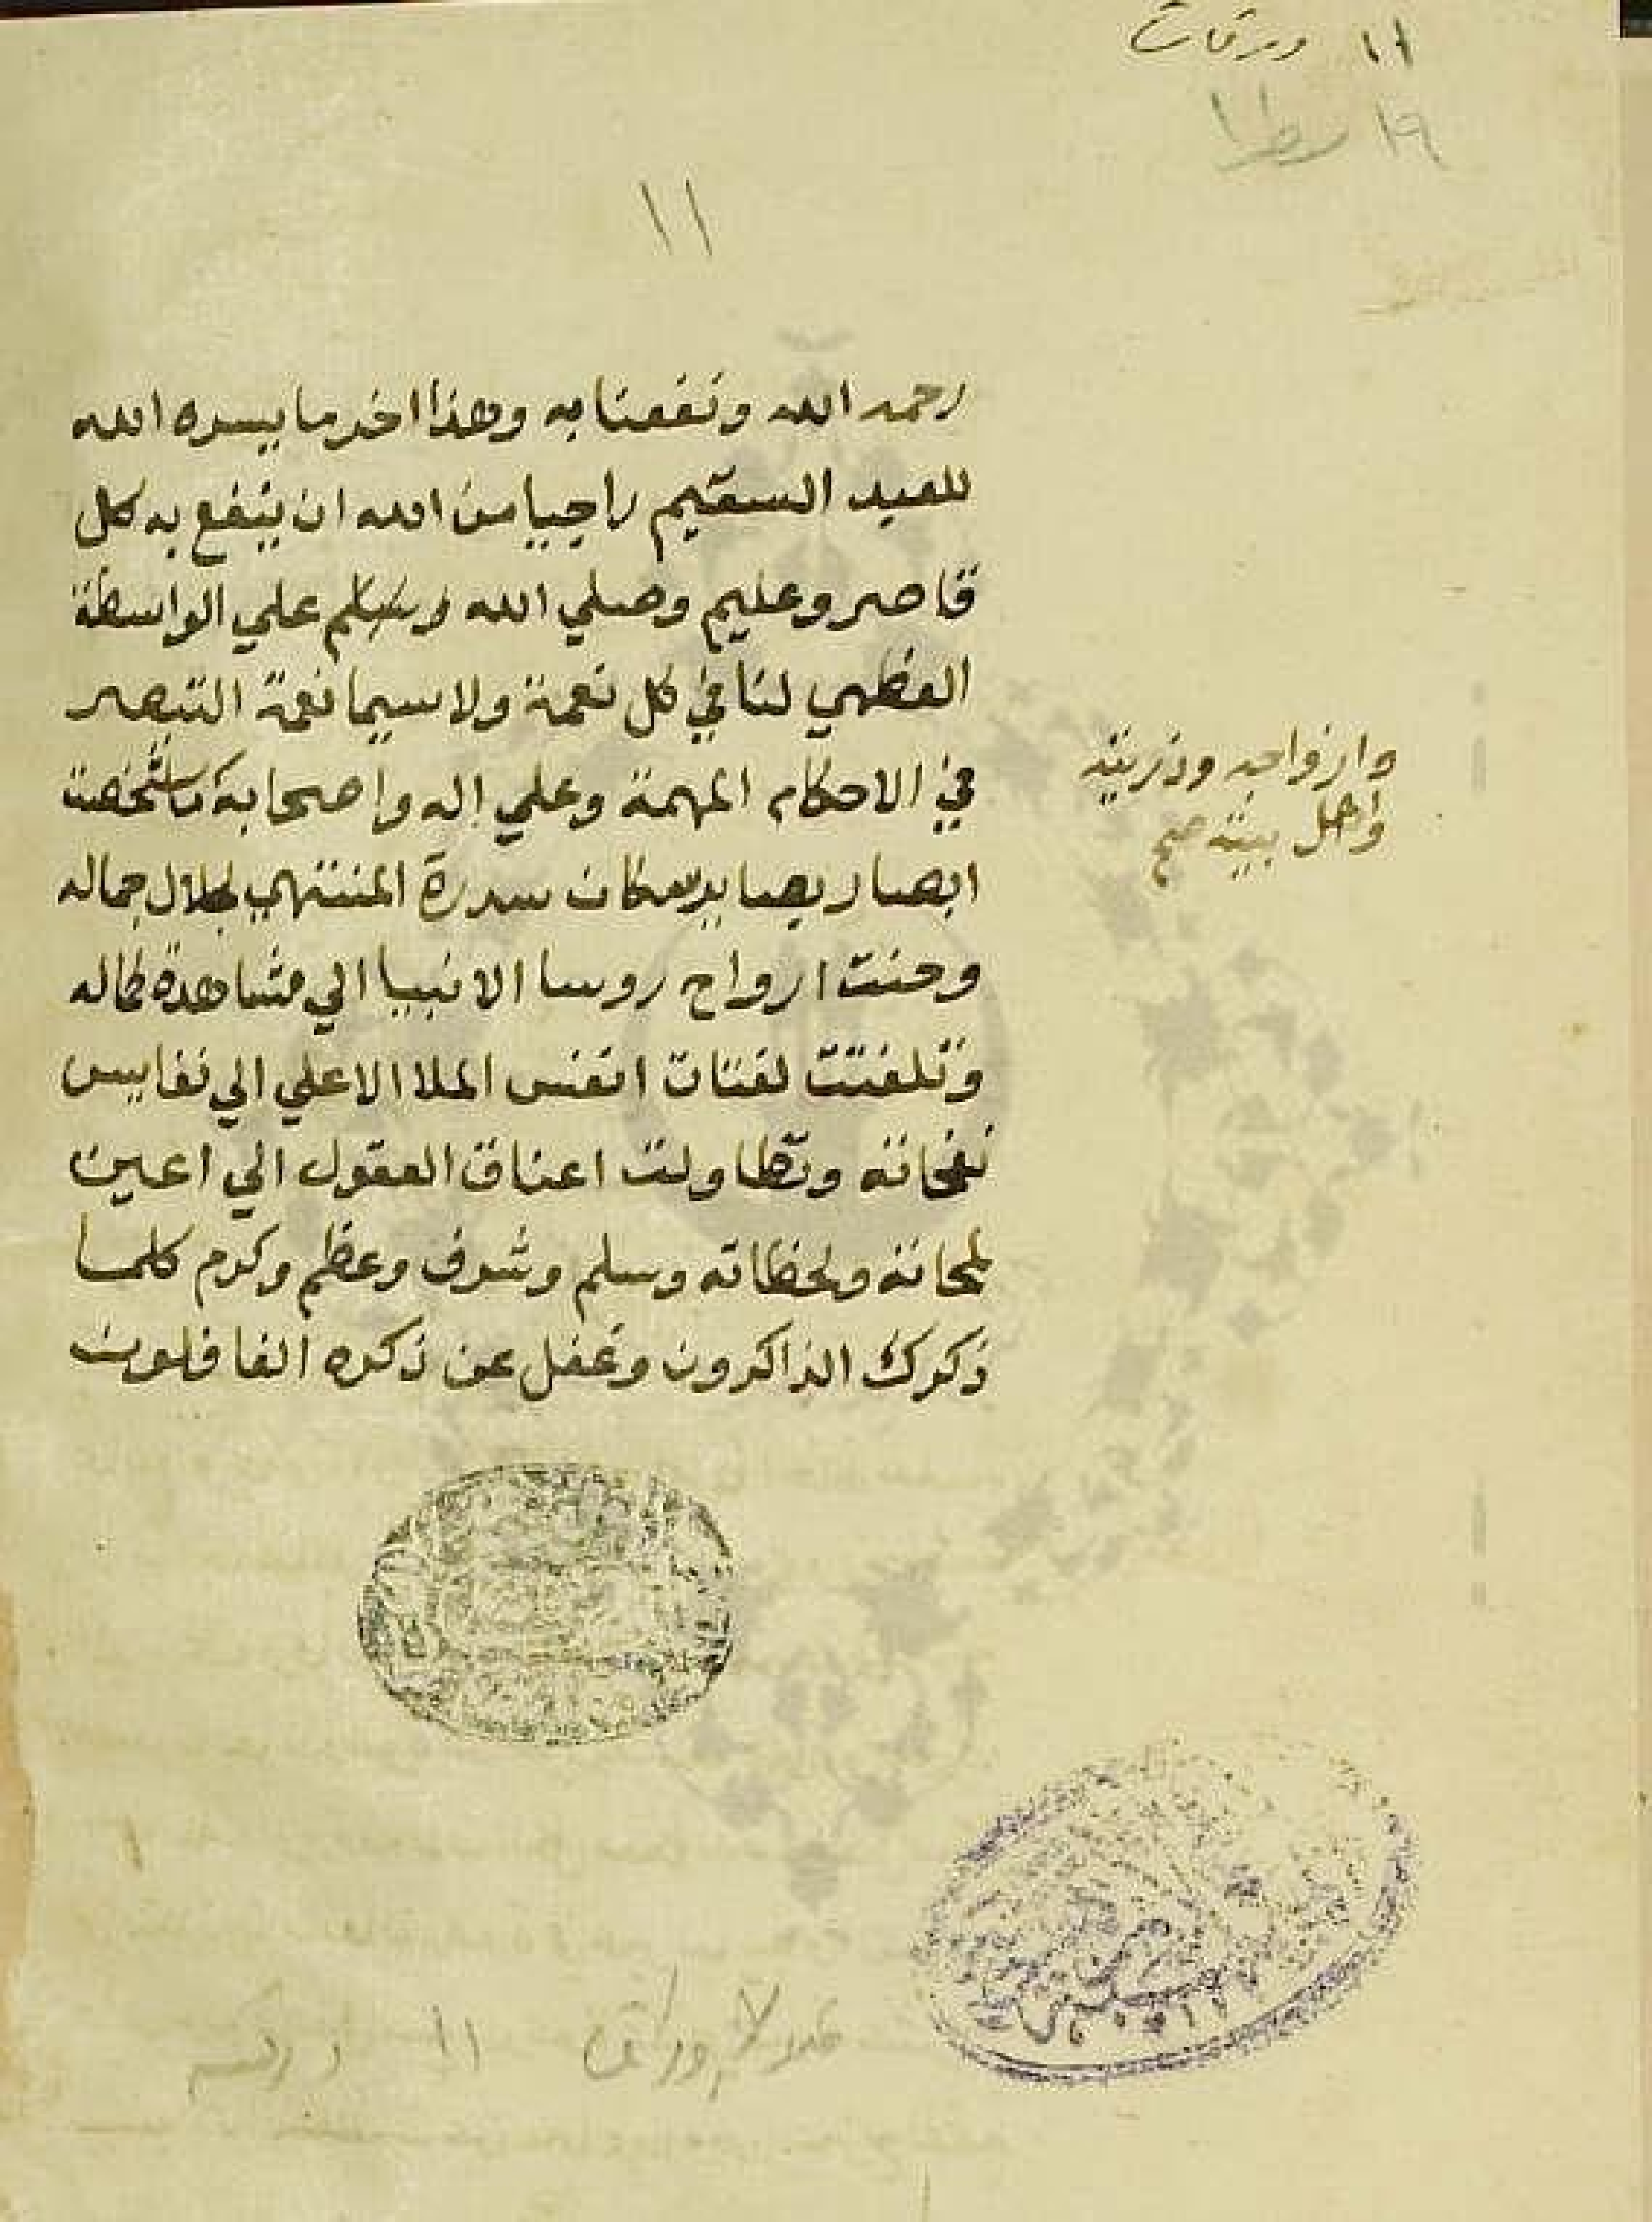 ١١ ورقات
١٩ سطرا
١١
رحمه الله ونفعنا به وهذا اخر ما يسره الله
للعبد السقيم راجيا من الله ان ينفع به كل
قاصر وعليم وصلي الله وسلم علي الواسطة
العظمي لنا في كل نعمة ولا سيما نعمة التبصر
في الاحكام المهمة وعلي اله واصحابه ما شخصت
وازواجه وذريته
واهل بيته صح
ابصار بصاير سكان سدرة المنتهي لجلال جماله
وحنت ارواح روسا الانبيا الي مشاهدة كماله
وتلفتت لفتات انفس الملا الاعلي الي نفايس
نفحاته وتطاولت اعناق العقول الي اعين
لمحاته ولحظاته وسلم وشرف وعظم وكرم كلما
ذكرك الذاكرون وغفل عن ذكره الغافلون
عدد الاوراق ١١ ورقه